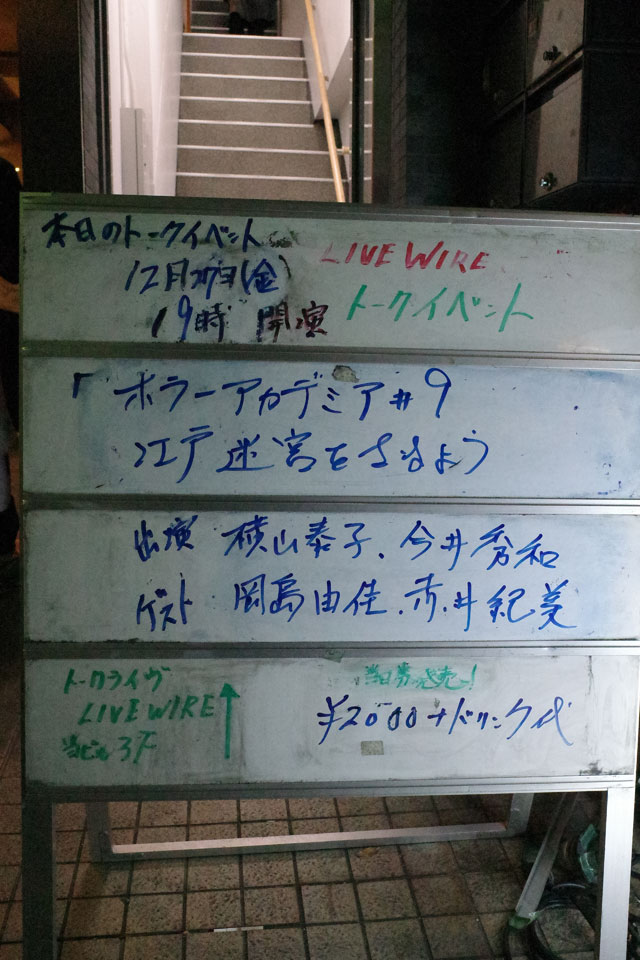 本日のトークイベント
LIVE WIRE
12月27日(金)
トークイベント
19時 開演
「ホラーアカデミア#9
江戸迷宮をさまよう
出演 横山泰子、今井秀和
ゲスト 岡島由佳、赤井紀美
トークライヴ
LIVE WIRE
当ビル3F
当日券発売中!
¥2000+ドリンク代